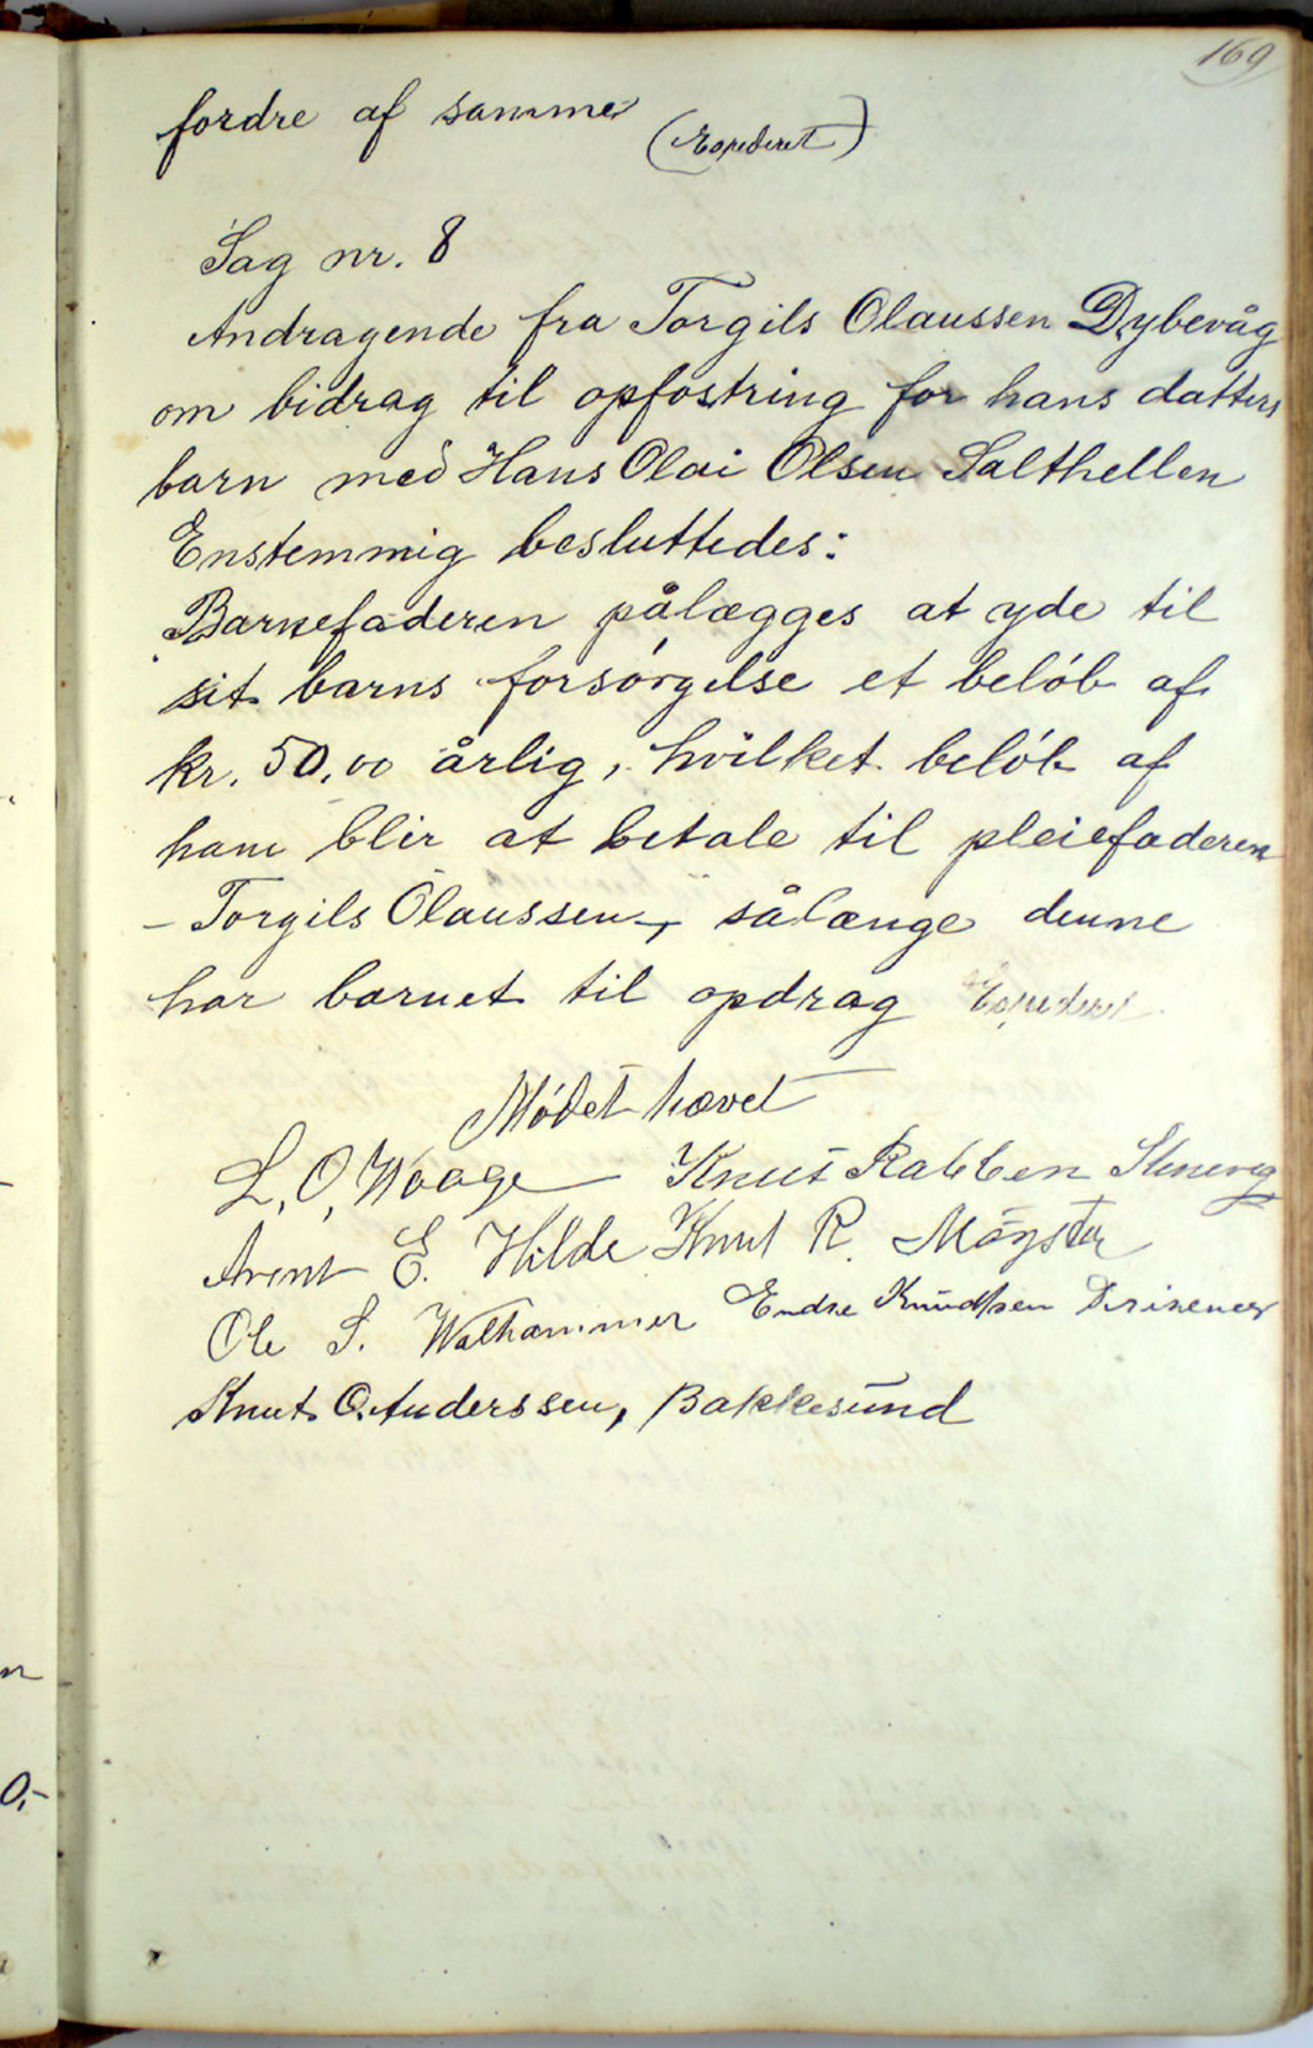 169
fordre af samme
(Expederet)
Sag nr. 8
Andragende fra Torgils Olaussen Dybevåg
om bidrag til opfostring for hans datters
barn med Hans Olai Olsen Salthellen
Enstemmig besluttedes:
Barnefaderen pålægges at yde til
sit barns forsórgelse et belób af
kr. 50,00 årlig, hvilket belób af
ham blir at betale til pleiefaderen
- Torgils Olaussen -, sålænge denne
har barnet til opdrag Expederet
Módet hævet
L. O. Waage Knut Rabben Steneveg
Arent E. Hilde Knut R. Møgster
Ole S. Walhammer Endre Knudtsen
Knut O. Anderssen, Bakkesund
n
0,-